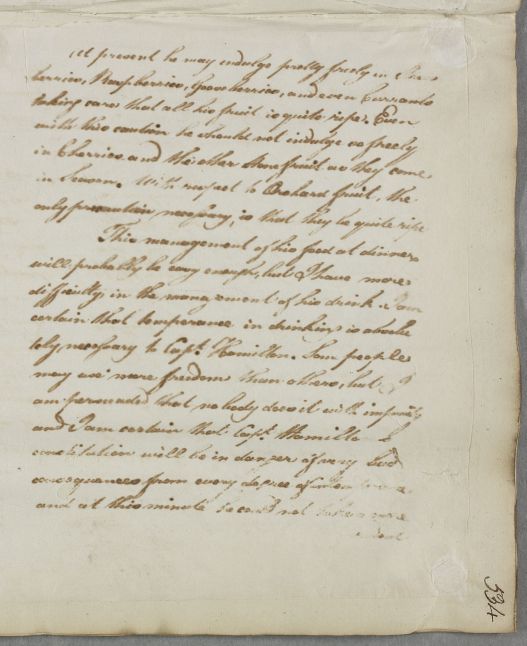 At present he may indulge pretty freely in Straw
berries, Raspberries, Gooseberries, and even Currants
taking care that all his fruit is quite ripe. Even
with this caution he should not indulge so freely
in Cherries and the other Stone fruit as they come
in Season. With respect to Orchard fruit, the
only precaution necessary, is that they be quite ripe
This management of his food at dinner
will probably be easy enough, but I have more
difficulty in the management of his drink. I am
certain that temperance in drinking is absolu
tely, necessary to Capt. Hamilton. Some people
may use more freedom than others, but I
am persuaded that nobody does it with impunity
and I am certain that Capt. Hamilton's
constitution will be in danger of very bad
consequences from every degree of intemperance
and at this minute he could not take
534